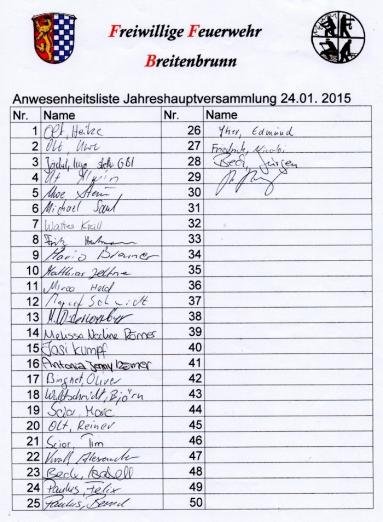 Freiwillige Feuerwehr
Breitenbrunn
Anwesenheitsliste Jahreshauptversammlung 24.01. 2015
Nr. Name Nr. Name
1 Olt, Heike 26 Edmund
2 Olt Uwe 27 Friedrich,
3 28 Beck, Jürgen
4 Olt 29
5 Uwe 30
6 Michael 31
7 Walter Krall 32
8 Fritz 33
9 Mario Brunner 34
10 Matthias 35
11 Mirco Held 36
12 Schmidt 37
13 38
14 Melissa Nadine Römer 39
15 Jasi Kumpf 40
16 Antonia Jenny Römer 41
17 Oliver 42
18 Björn 43
19 Scior, Marc 44
20 Olt, Reiner 45
21 Scior, Tim 46
22 Krall Alexander 47
23 Beck, 48
24 Paulus, Felix 49
25 Paulus, Bernd 50